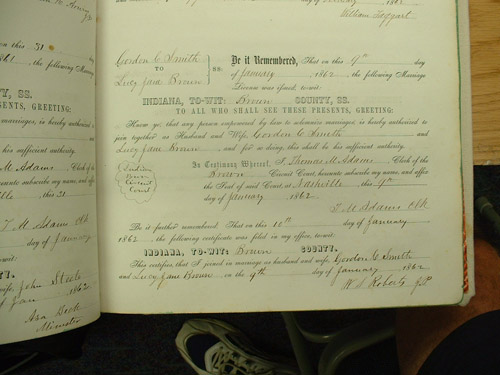 day of
1861
William Taggart
on this 31
1861, the following
TY, SS.
PRESENTS, GREETING:
marriages, is hereby authorized
and
is sufficient authority.
M Adams Clerk of the
subscribe my name, and office
this 31
T M Adams Clk
day of January
wife, John Steele
of Jan 1862
Asa Beck
Minister
Gordon C Smith
TO
Lucy Jane Brown
SS:
Be it Remembered, That on this 9th day
of January 1862, the following Marriage
License was issued, to-wit:
INDIANA, TO-WIT: Brown COUNTY, SS.
TO ALL WHO SHALL SEE THESE PRESENTS, GREETING:
Know ye that any person empowered by law to solemnize marriages, is hereby authorized to
join together as Husband and Wife, Gordon C Smith and
Lucy Jane Brown and for so doing, this shall be his sufficient authority.
In Testimony Whereof, I, Thomas M. Adams Clerk of the
Brown Circuit Court, hereunto subscribe my name, and affix
the Seal of said Court, at Nashville this 9th
day of January 1862
Indiana
Brown
Circuit
Court
T M Adams Clk
Be it further remembered, That on this 10th day of January
1862 the following certificate was filed in my office, to-wit:
INDIANA, TO-WIT: Brown COUNTY.
This certifies, that I joined in marriage as husband and wife, Gordon C Smith
and Lucy Jane Brown on the 9th day of January 1862
W S Roberts J.P.